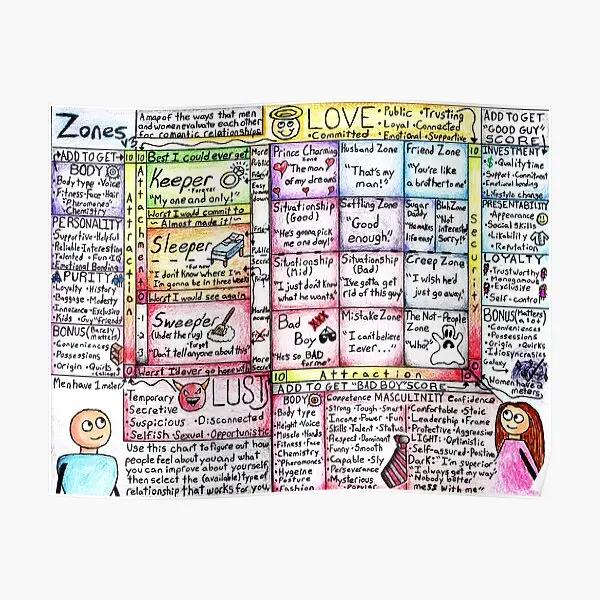 Zones
A map of the ways that men
and women evaluate each other
for romantic relationships
LOVE
•Public •Trusting
•Loyal •Connected
•Committed •Emotional •Supportive
ADD TO GET
"GOOD GUY"
SCORE
ADD TO GET
BODY
Body type •Voice
•Fitness •Face •Hair
"Pheromones"
Chemistry
PERSONALITY
Supportive •Helpful
Reliable •Interesting
Talented •Fun •IQ
Emotional Bonding
PURITY
Loyalty •History
•Baggage •Modesty
Innocence •Exclusive
Kids •Guy "Friends"
BONUS (Barely
matters)
•Conveniences
•Possessions
•Origin •Quirks
Men have 1 meter
10
10
Attraction
Attachment
Best I could ever get
Keeper
Forever
"My one and only!"
Worst I would commit to
~Almost made it!~
Sleeper
For now
"I don't know where I'm
I'm gonna be in three weeks"
Worst I would see again
Sweeper
(Under the rug) Forget
"Don't tell anyone about this"
Worst I'd ever go home with
More
Public
More
Secret
Prince Charming
Zone
"The man
of my dreams"
Husband Zone
"That's my
man!"
Friend Zone
"You're like
a brother to me"
Situationship
(Good)
"He's gonna pick
me one day!"
Settling Zone
"Good
enough."
Sugar
Daddy
"He makes
life easy"
Blah Zone
"Not
interested
Sorry!"
Situationship
(Mid)
"I just don't know
what he wants"
Situationship
(Bad)
"I've gotta get
rid of this guy"
Creep Zone
"I wish he'd
just go away."
Bad
XXX
Boy
"He's so BAD
for me"
Mistake Zone
"I can't believe
I ever..."
The Not-People
Zone
"Who?"
10
Security
10
Attraction
0
INVESTMENT
$ •Quality time
•Support •Commitment
•Emotional bonding
•Lifestyle change
PRESENTABILITY
•Appearance
•Social skills
•Likability
•Reputation
LOYALTY
•Trustworthy
•Monogamous
•Exclusive
•Self-control
BONUS (Matters
a lot)
•Conveniences
•Possessions
•Origin •Quirks
•Idiosyncrasies
Galaxy
Women have 2
meters
LUST
Temporary
•Secretive
Suspicious •Disconnected
•Selfish •Sexual •Opportunistic
Use this chart to figure out how
people feel about you and what
you can improve about yourself,
then select the (available) type of
relationship that works for you
ADD TO GET "BAD BOY" SCORE
BODY
Body type
Height •Voice
Muscle •Hands
•Fitness •Face
•Chemistry
"Pheromones"
Hygiene
Posture
Fashion
Competence MASCULINITY Confidence
•Strong •Tough •Smart
•Income •Fun •Ambition
•Skills •Talent •Status
•Respect •Dominant
•Funny •Smooth
•Capable •Sly
•Perseverance
Mysterious
•Popular
•Comfortable •Stoic
•Leadership •Frame
•Protective •Aggressive
LIGHT: •Optimistic
•Self-assured •Positive
Dark: "I'm superior"
"I always get my way"
"Nobody better
mess with me"